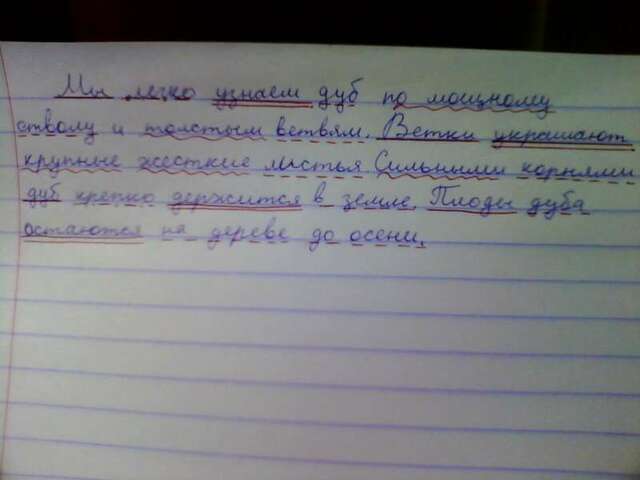 Мы легко узнаем дуб по мощному
стволу и толстым ветвям. Ветки украшают
крупные жесткие листья Сильными корнями
дуб крепко держится в земле. Плоды дуба
остаются на дереве до осени.